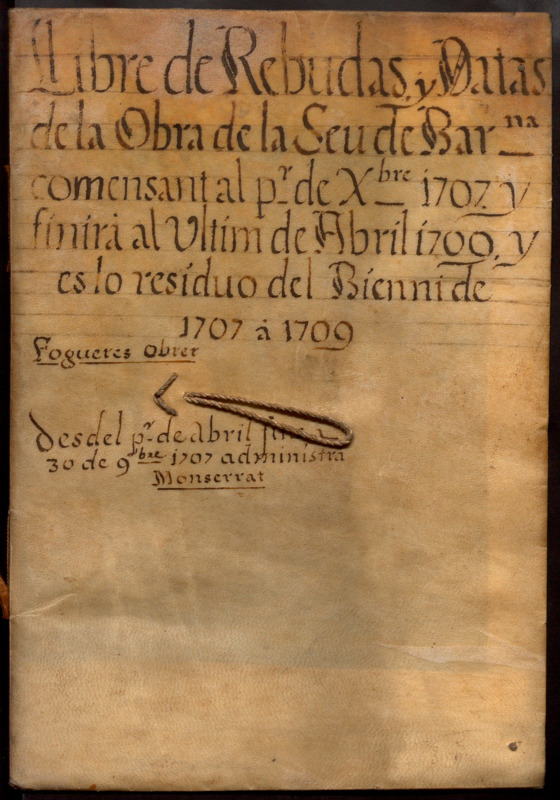 Llibre de Rebudas, y Datas
de la Obra de la Seu de Bar.na
comensant al pr. de Xbre 1707 y
finirà al Vltim de Abril 1709, y
es lo residuo del Bienni de
1707 à 1709
Fogueres Obrer
Desdel pr. de Abril fins a
30 de 9bre 1707 administra
Monserrat